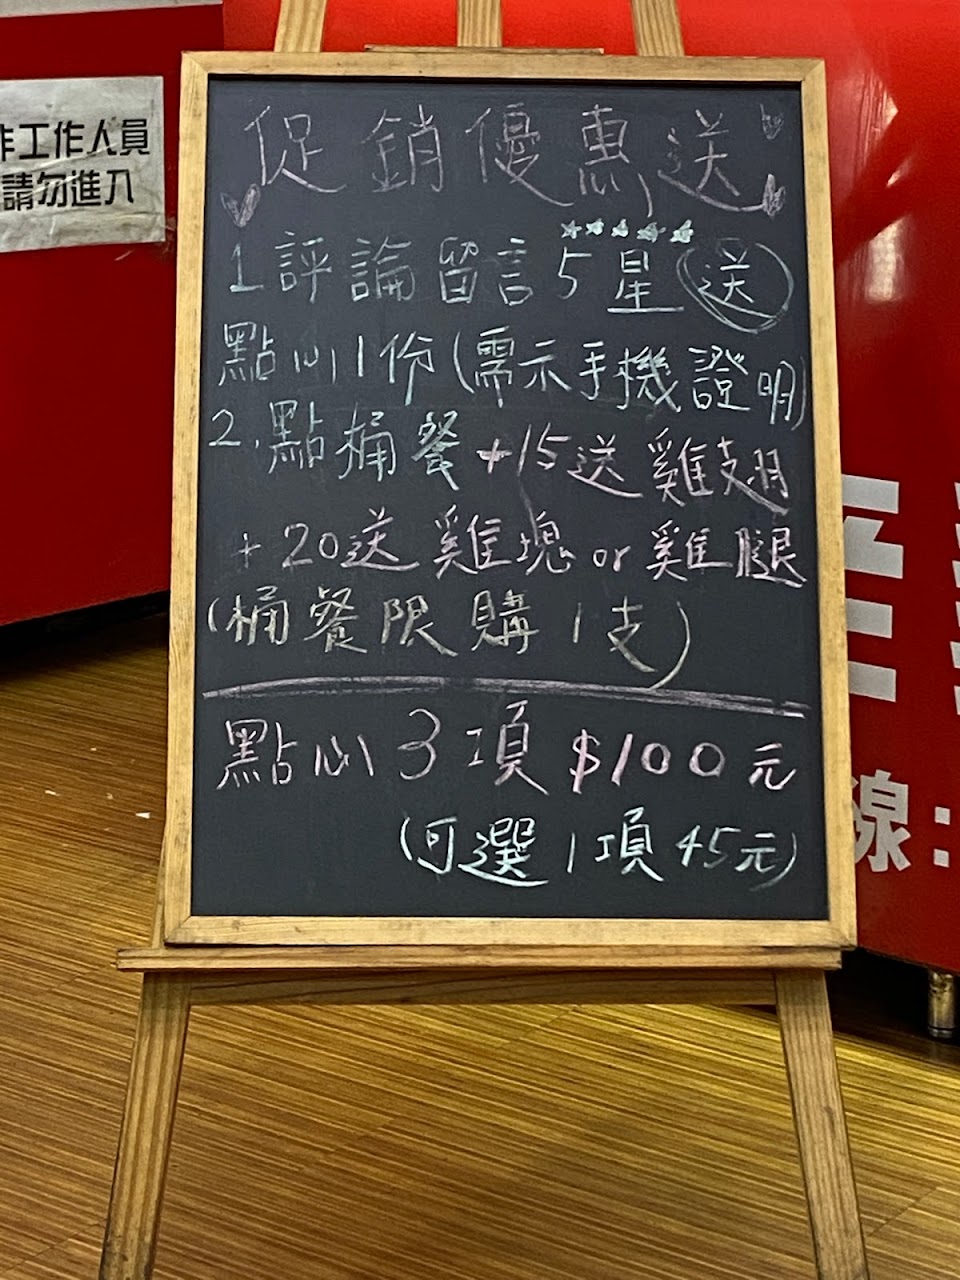 作工作人員
請勿進入
促銷優惠送
1.評論留言5星送
點心1份(需示手機證明)
2.點桶餐+15送雞翅
+20送雞塊or雞腿
(桶餐限購1支)
點心3項$100元
(可選1項45元)
線: